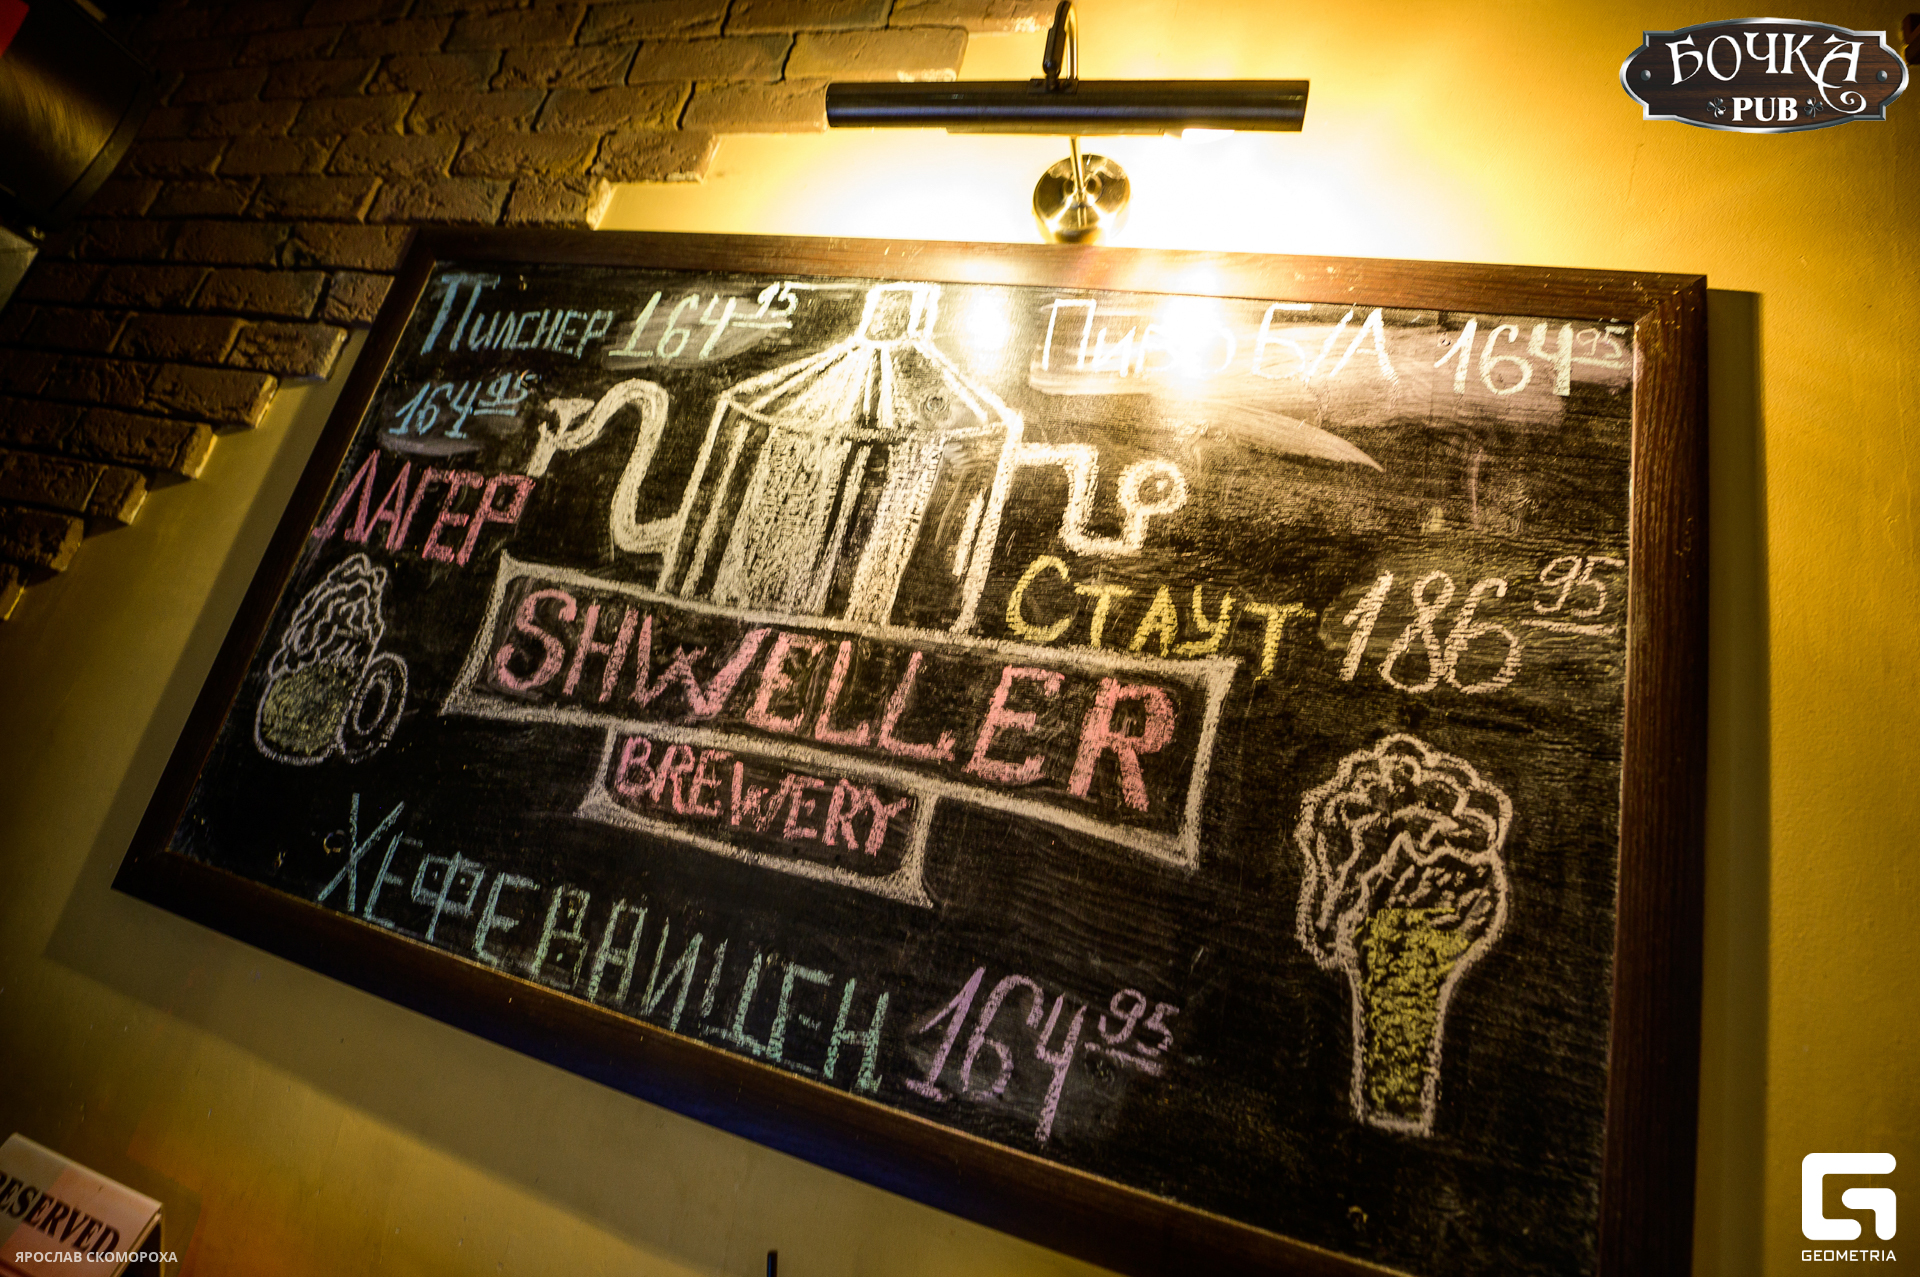 БОЧКА
PUB
Пилснер 164 95
Пиво Б/А 164 95
164 95
ЛАГЕР
СТАУТ 186 95
SHWELLER
BREWERY
ХЕФЕВАИЦЕН 164 95
RESERVED
ЯРОСЛАВ СКОМОРОХА
GEOMETRIA